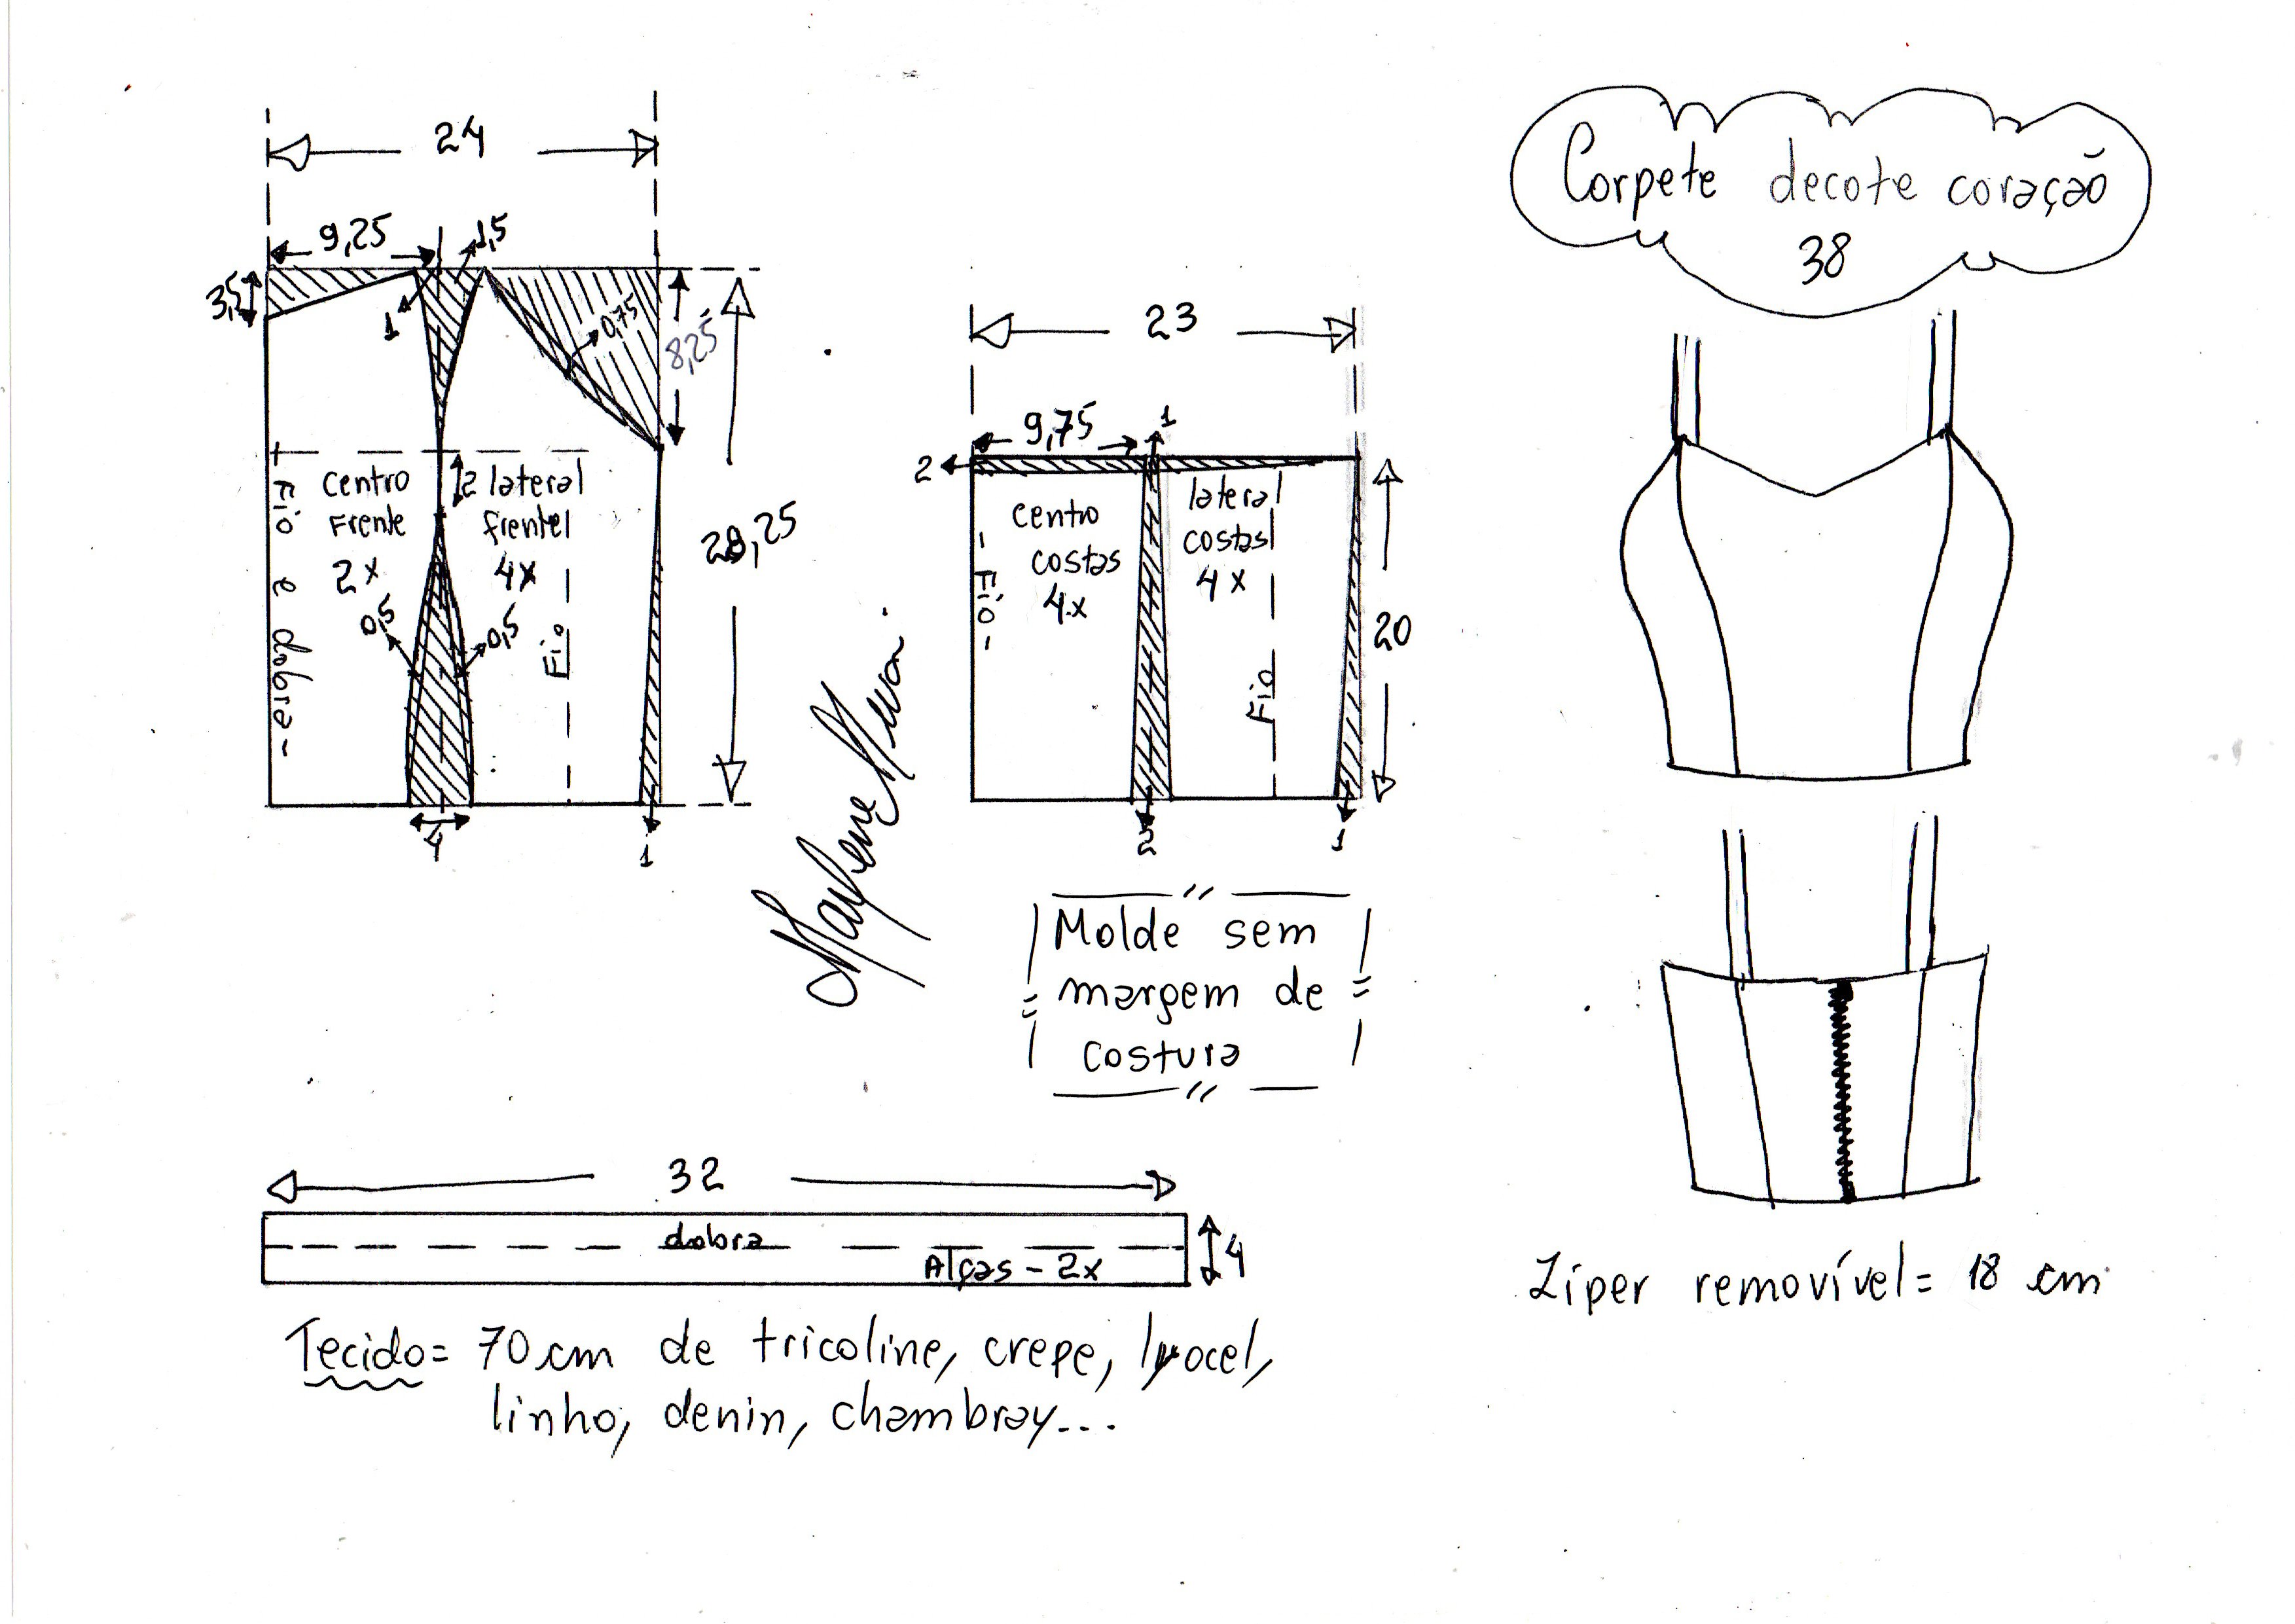 Corpete decote coração
38
24
9,25
1,5
3,5
1
0,75
8,25
28,25
2
centro
Frente
2x
lateral
frente
4x
0,5
0,5
Fio e dobra-
Fio
4
1
23
9,75
1
2
centro
costas
4x
lateral
costas
4x
- Fio -
Fio
20
2
1
Marlene
Molde sem
margem de
costura
32
dobra
Alças - 2x
4
Tecido= 70 cm de tricoline, crepe, lyocel,
linho, denin, chambray...
Ziper removível= 18 cm